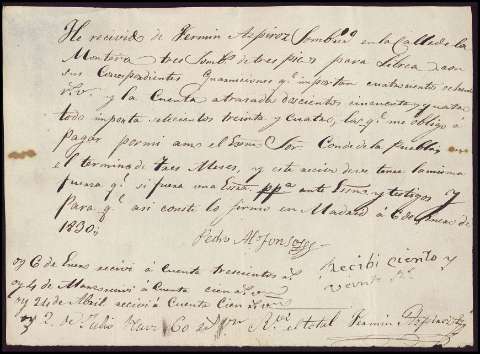 He recivido de Fermin Azpiroz Sombrero en la Calle de la
Montera tres Sombs. de tres picos para librea con
sus Correspondientes Guarniciones qe. importan cuatrocientos ochenta
rs. vn. y la Cuenta atrasada doscientos cincuenta y cuatro
todo importa setecientos treinta y cuatro, los qe. me obligo á
pagar por mi amo el Exmo Sor. Conde de la Puebla en
el termino de Tres Meses, y este recivo deve tener la misma
fuerza qe. si fuera una ppca ante Essno y testigos y
Para qe. asi conste lo firmo en Madrid á 6 de de
1830
Pedro Alfonso
oy 6 de Enero recivi á Cuenta trescientos rs.
oy 4 de Marzo recivi á Cuenta cien rs. vn.
oy 24 de Abril recivi á Cuenta Cien rs. vn.
Recibi ciento y
veinte rs.
oy 2 de Julio 60 rs. vn. el total Fermin Azpiroz